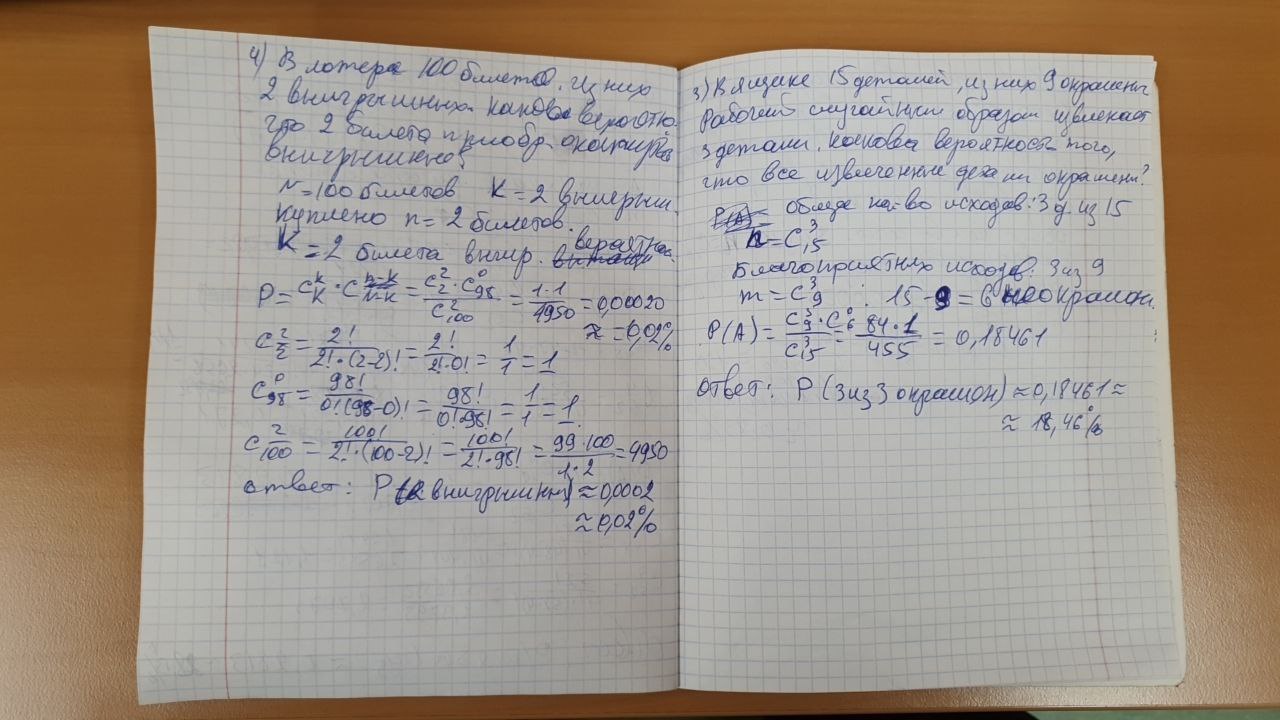 4) В лотере 100 билетов. Из них
2 выигрышных. Какова вероятно.
что 2 билета приобр. окажутся
выигрышно?
N=100 билетов K=2 выигрыш.
Куплено n=2 билетов.
K=2 билета выигр. вероятнос.
P= C_K^k · C_{N-K}^{n-k} = C_2^2 · C_98^0 / C_100^2 = 1·1 / 4950 = 0,00020
≈ 0,02%
C_2^2 = 2! / 2!·(2-2)! = 2! / 2!·0! = 1/1 = 1
C_98^0 = 98! / 0!(98-0)! = 98! / 0!·98! = 1/1 = 1.
C_100^2 = 100! / 2!·(100-2)! = 100! / 2!·98! = 99·100 / 1·2 = 4950
ответ: P (2 выигрышных) ≈ 0,0002
≈ 0,02%
3) В ящике 15 деталей, из них 9 окрашены
Рабочий случайным образом извлекает
3 детали. Какова вероятность того,
что все извлеченные детали окрашены?
P(A) общее кол-во исходов: 3 д. из 15
n = C_15^3
Благоприятных исходов: 3 из 9
m = C_9^3 : 15-9 = 6 неокрашен.
P(A) = C_9^3 · C_6^0 / C_15^3 = 84·1 / 455 = 0,18461
ответ: P (3 из 3 окрашен) ≈ 0,18461 ≈
≈ 18,46%